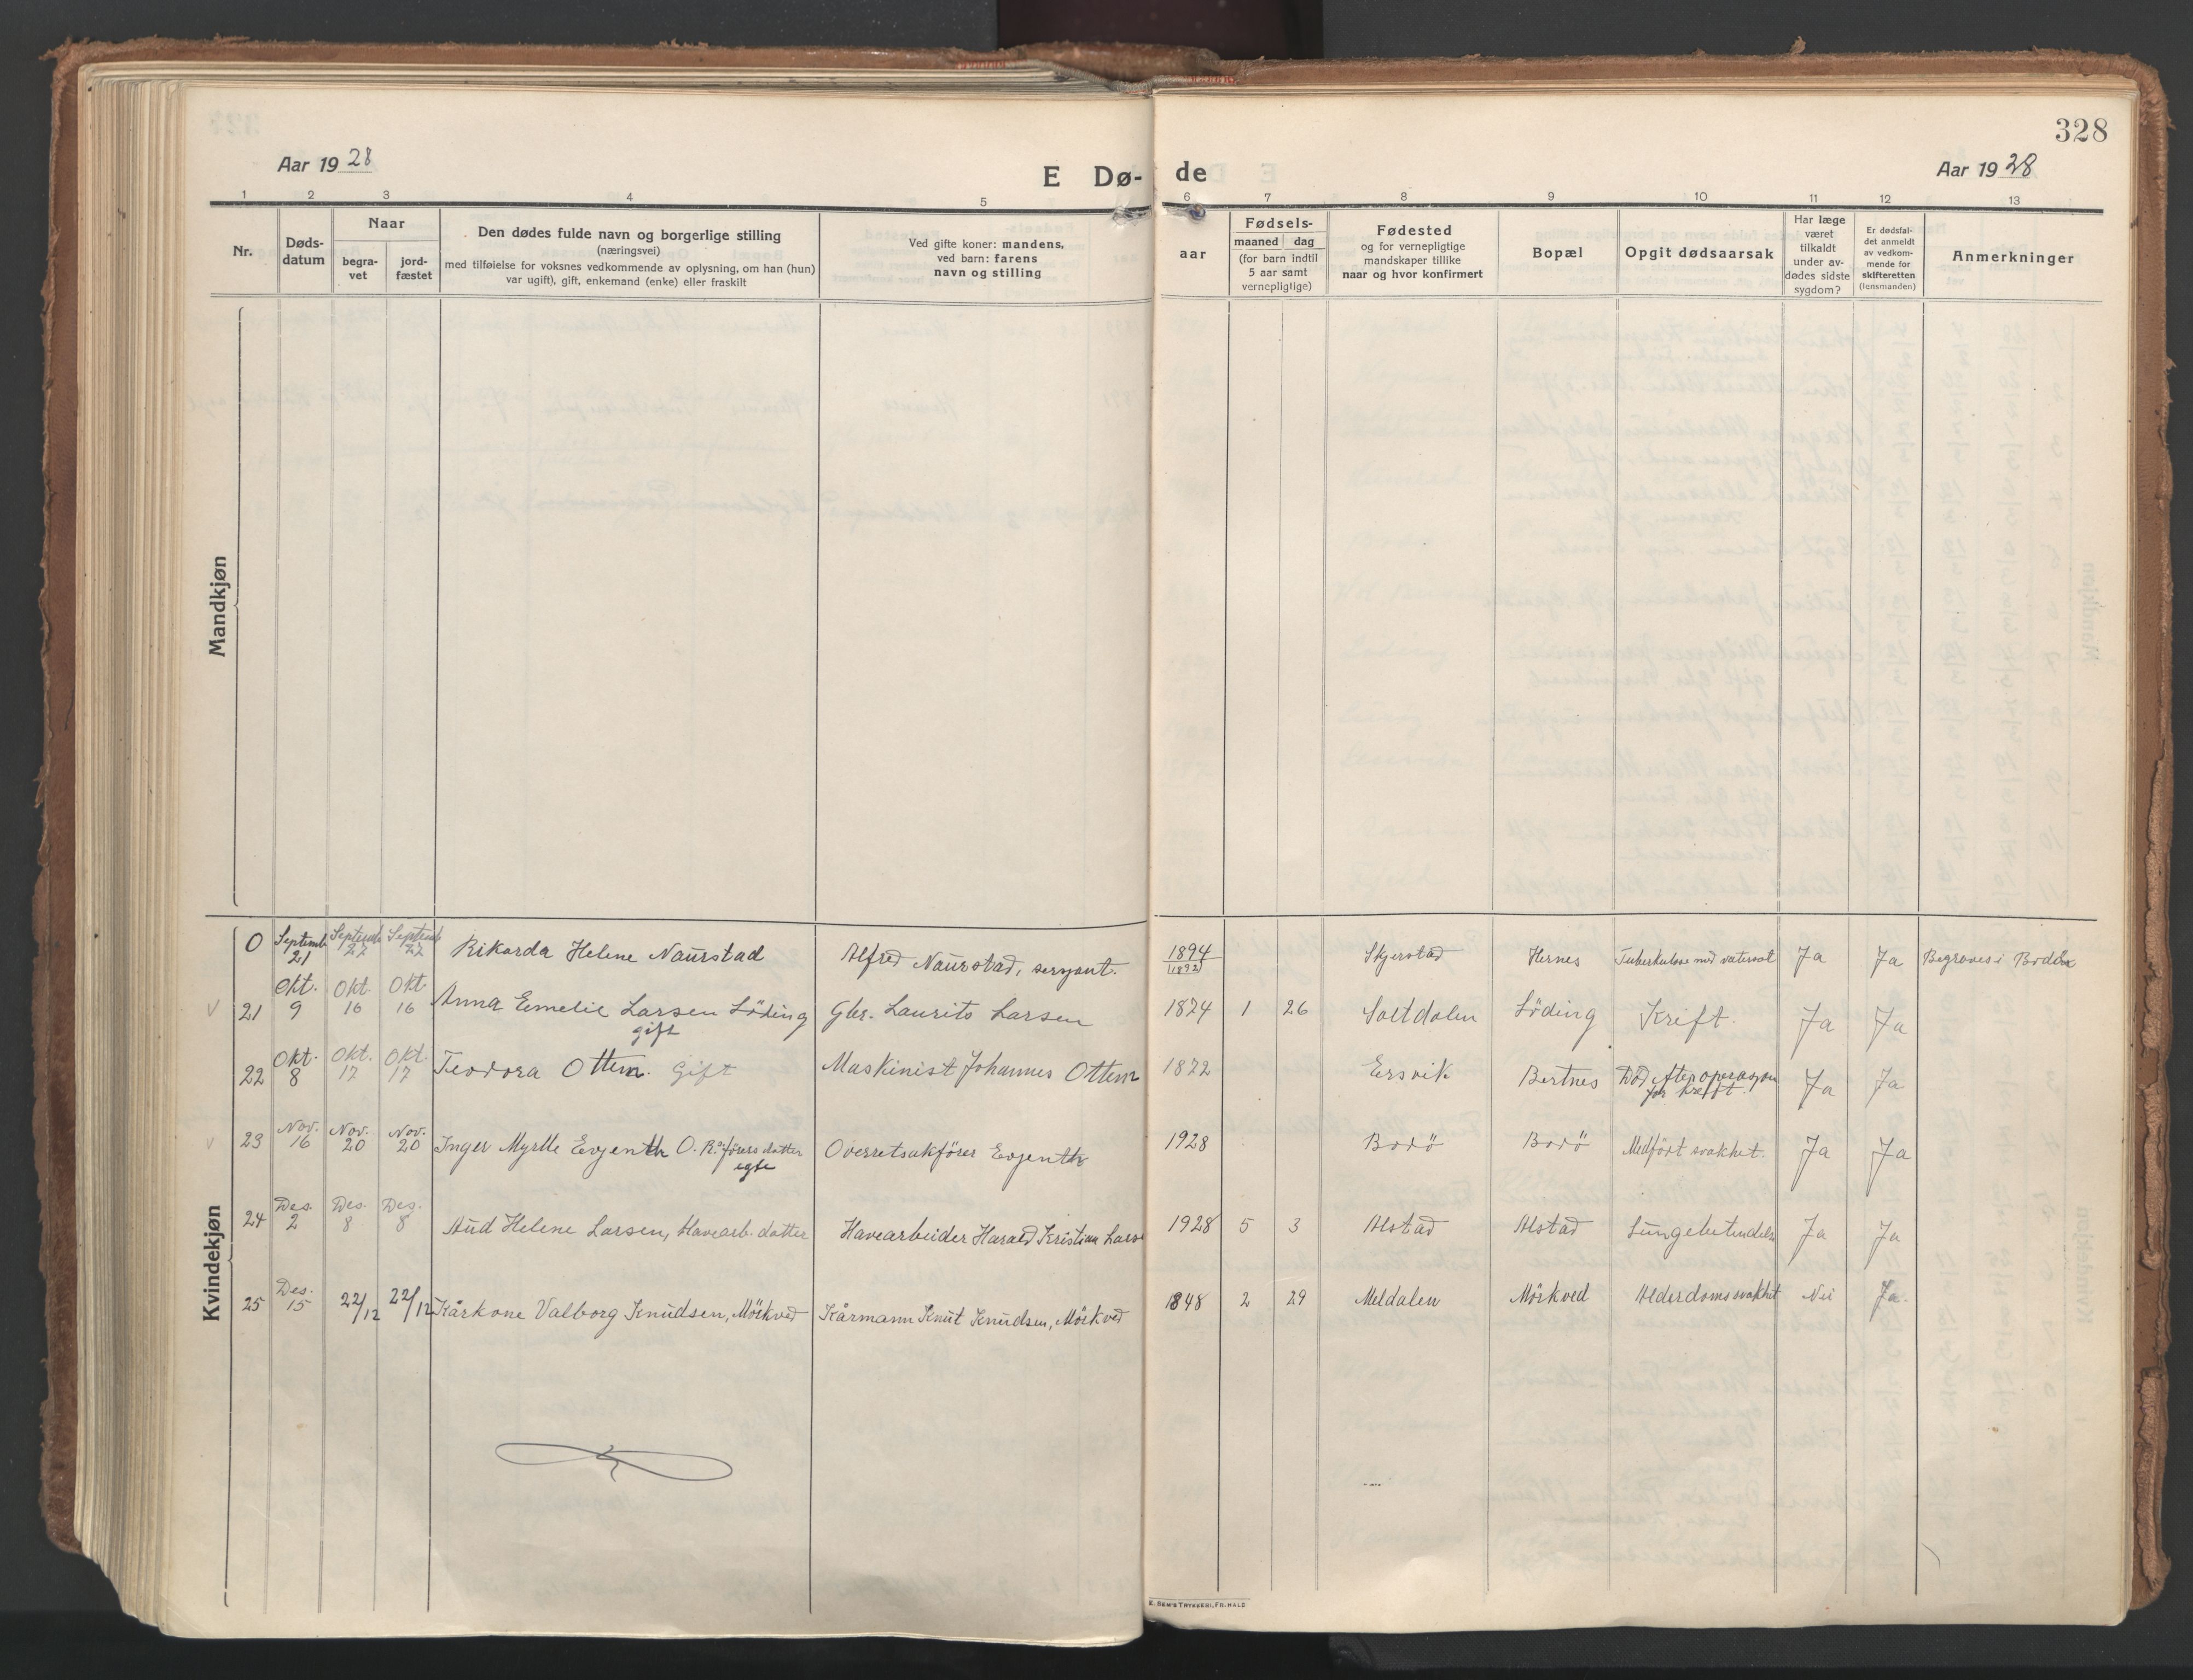 328
Aar 1928
E Dø-
de
Aar 1928
1 2 3 4 5 6 7 8 9 10 11 12 13
Nr.
Døds-
datum
Naar
begra-
vet
jord-
fæstet
Den dødes fulde navn og borgerlige stilling
(næringsvei)
med tilføielse for voksnes vedkommende av oplysning, om han (hun)
var ugift), gift, enkemand (enke) eller fraskilt
Ved gifte koner: mandens,
ved barn: farens
navn og stilling
aar
Fødsels-
maaned dag
(for barn indtil
5 aar samt
vernepligtige)
Fødested
og for vernepligtige
mandskaper tillike
naar og hvor konfirmert
Bopæl
Opgit dødsaarsak
Har læge
været
tilkaldt
under av-
dødes sidste
sygdom?
Er dødsfal-
det anmeldt
av vedkom-
mende for
skifteretten
(lensmanden)
Anmerkninger
Mandkjøn
Kvindekjøn
0 Septemb. 21 Septemb. 22 Septemb. 22 Rikarda Helene Naurstad Alfred Naurstad, serjant. 1894 Skjerstad Hernes Tuberkulose med vatersot Ja Ja Begraves i Bodö
1892
21 Okt. 9 Okt. 16 Okt. 16 Anna Emelie Larsen Löding Gbr. Laurits Larsen 1874 1 26 Saltdalen Löding Kreft. Ja Ja
gift
22 Okt. 8 Okt. 17 Okt. 17 Teodora Ottem. Gift Maskinist Johannes Ottem 1872 Ersvik Bertnes Död efter operasjon Ja Ja
for kreft.
23 Nov. 16 Nov. 20 Nov. 20 Inger Myrtle Evjenth O.R.förers datter Overretsakförer Evjenth 1928 Bodö Bodö Medfört svakhet. Ja Ja
egte
24 Des. 2 Des. 8 Des. 8 Aud Helene Larsen, Havearb. datter Havearbeider Harald Kristian Larse 1928 5 3 Alstad Alstad Lungebetendelse Ja Ja
25 Des. 15 22/12 22/12 Kårkone Valborg Knudsen, Mörkved Kårmann Knut Knudsen, Mörkved 1848 2 29 Meldalen Mörkved Alderdomssvakhet Nei Ja.
E. SEM'S TRYKKERI, FR.HALD